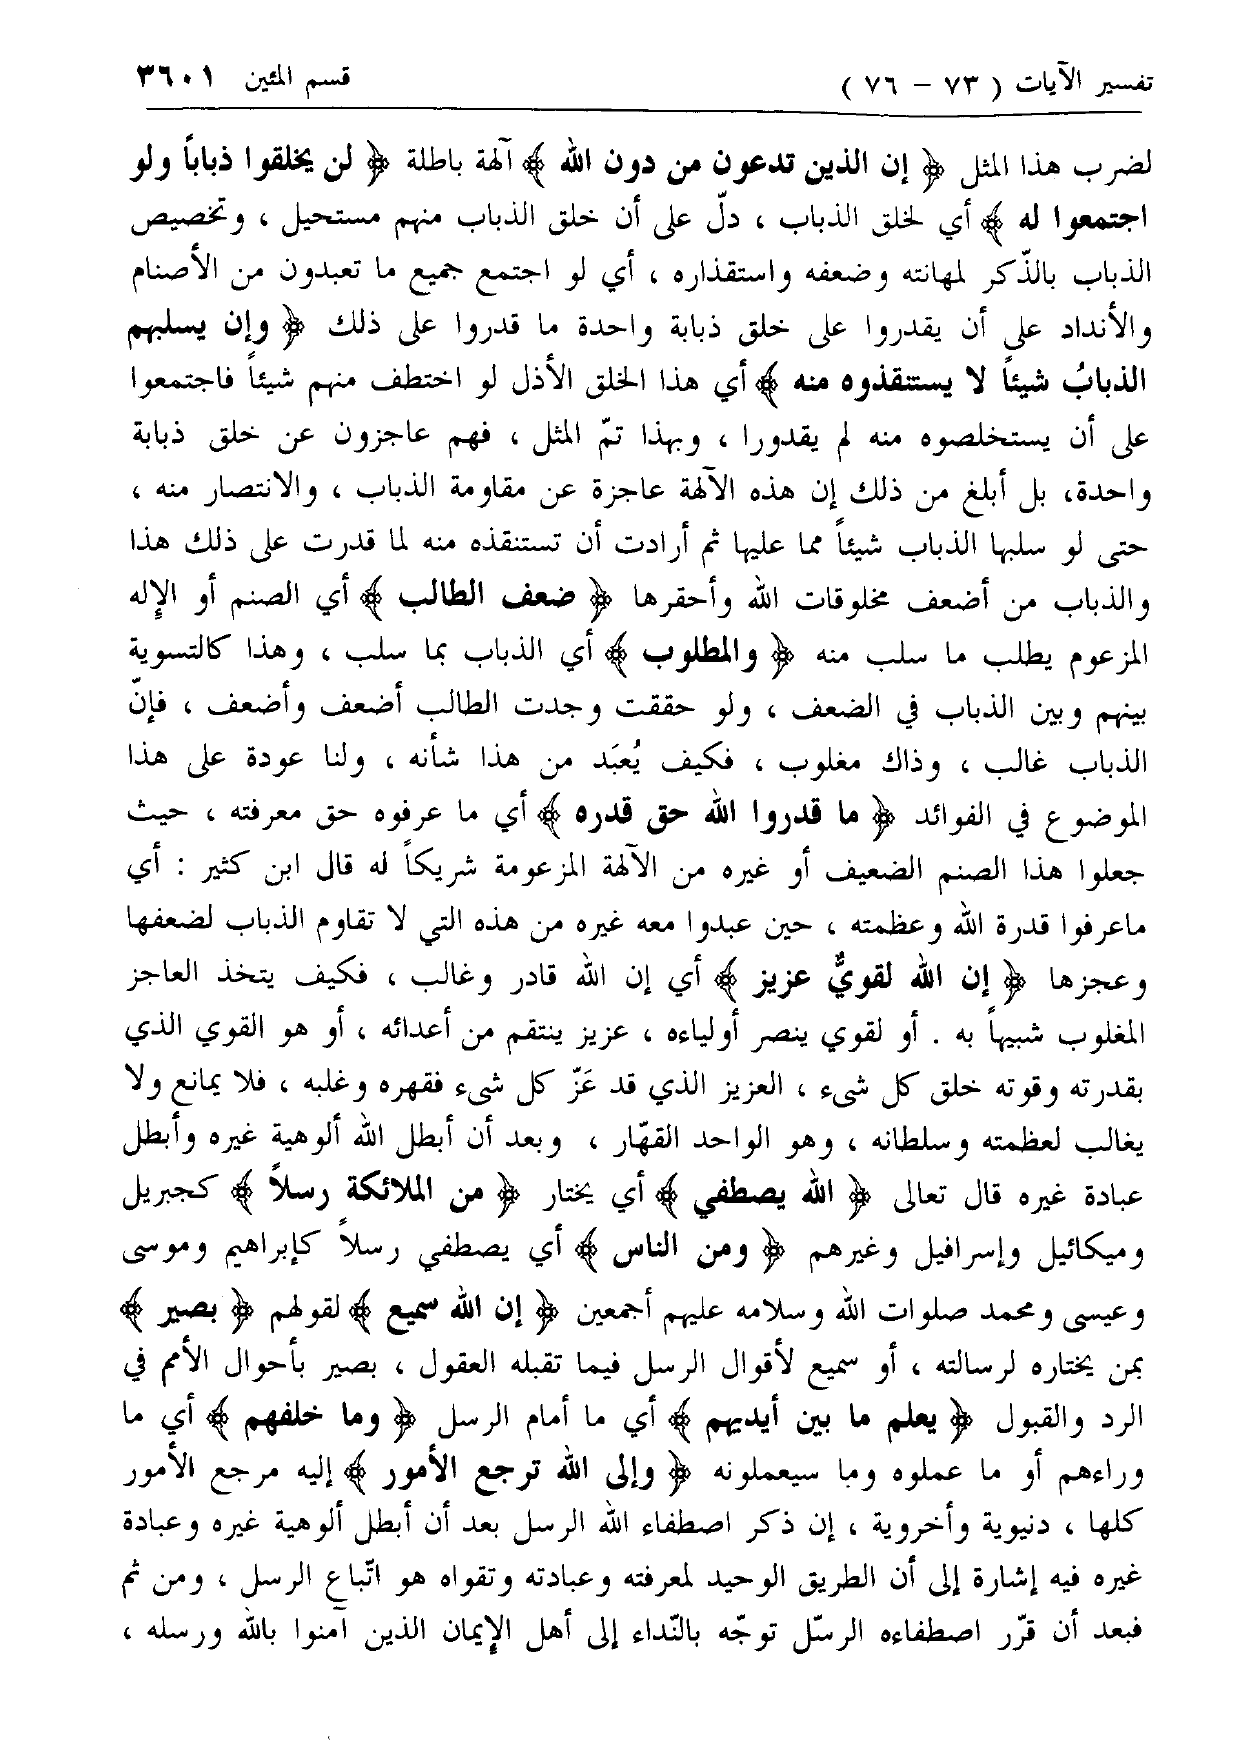 تفسير الآيات ( ٧٣ – ٧٦ ) قسم المئين ٣٦٠١
لضرب هذا المثل ﴿ إن الذين تدعون من دون الله ﴾ آلهة باطلة ﴿ لن يخلقوا ذباباً ولو
اجتمعوا له ﴾ أي لخلق الذباب ، دلّ على أن خلق الذباب منهم مستحيل ، وتخصيص
الذباب بالذّكر لمهانته وضعفه واستقذاره ، أي لو اجتمع جميع ما تعبدون من الأصنام
والأنداد على أن يقدروا على خلق ذبابة واحدة ما قدروا على ذلك ﴿ وإن يسلبهم
الذبابُ شيئاً لا يستنقذوه منه ﴾ أي هذا الخلق الأذل لو اختطف منهم شيئاً فاجتمعوا
على أن يستخلصوه منه لم يقدورا ، وبهذا تمّ المثل ، فهم عاجزون عن خلق ذبابة
واحدة، بل أبلغ من ذلك إن هذه الآلهة عاجزة عن مقاومة الذباب ، والانتصار منه ،
حتى لو سلبها الذباب شيئاً مما عليها ثم أرادت أن تستنقذه منه لما قدرت على ذلك هذا
والذباب من أضعف مخلوقات الله وأحقرها ﴿ ضعف الطالب ﴾ أي الصنم أو الإله
المزعوم يطلب ما سلب منه ﴿ والمطلوب ﴾ أي الذباب بما سلب ، وهذا كالتسوية
بينهم وبين الذباب في الضعف ، ولو حققت وجدت الطالب أضعف وأضعف ، فإنّ
الذباب غالب ، وذاك مغلوب ، فكيف يُعبَد من هذا شأنه ، ولنا عودة على هذا
الموضوع في الفوائد ﴿ ما قدروا الله حق قدره ﴾ أي ما عرفوه حق معرفته ، حيث
جعلوا هذا الصنم الضعيف أو غيره من الآلهة المزعومة شريكاً له قال ابن كثير : أي
ماعرفوا قدرة الله وعظمته ، حين عبدوا معه غيره من هذه التي لا تقاوم الذباب لضعفها
وعجزها ﴿ إن الله لقويٌّ عزيز ﴾ أي إن الله قادر وغالب ، فكيف يتخذ العاجز
المغلوب شبيهاً به . أو لقوي ينصر أولياءه ، عزيز ينتقم من أعدائه ، أو هو القوي الذي
بقدرته وقوته خلق كل شيء ، العزيز الذي قد عَزّ كل شيء فقهره وغلبه ، فلا يمانع ولا
يغالب لعظمته وسلطانه ، وهو الواحد القهّار ، وبعد أن أبطل الله ألوهية غيره وأبطل
عبادة غيره قال تعالى ﴿ الله يصطفي ﴾ أي يختار ﴿ من الملائكة رسلاً ﴾ كجبريل
وميكائيل وإسرافيل وغيرهم ﴿ ومن الناس ﴾ أي يصطفي رسلاً كإبراهيم وموسى
وعيسى ومحمد صلوات الله وسلامه عليهم أجمعين ﴿ إن الله سميع ﴾ لقولهم ﴿ بصير ﴾
بمن يختاره لرسالته ، أو سميع لأقوال الرسل فيما تقبله العقول ، بصير بأحوال الأمم في
الرد والقبول ﴿ يعلم ما بين أيديهم ﴾ أي ما أمام الرسل ﴿ وما خلفهم ﴾ أي ما
وراءهم أو ما عملوه وما سيعملونه ﴿ وإلى الله ترجع الأمور ﴾ إليه مرجع الأمور
كلها ، دنيوية وأخروية ، إن ذكر اصطفاء الله الرسل بعد أن أبطل ألوهية غيره وعبادة
غيره فيه إشارة إلى أن الطريق الوحيد لمعرفته وعبادته وتقواه هو اتّباع الرسل ، ومن ثم
فبعد أن قرّر اصطفاءه الرسّل توجّه بالنّداء إلى أهل الإيمان الذين آمنوا بالله ورسله ،